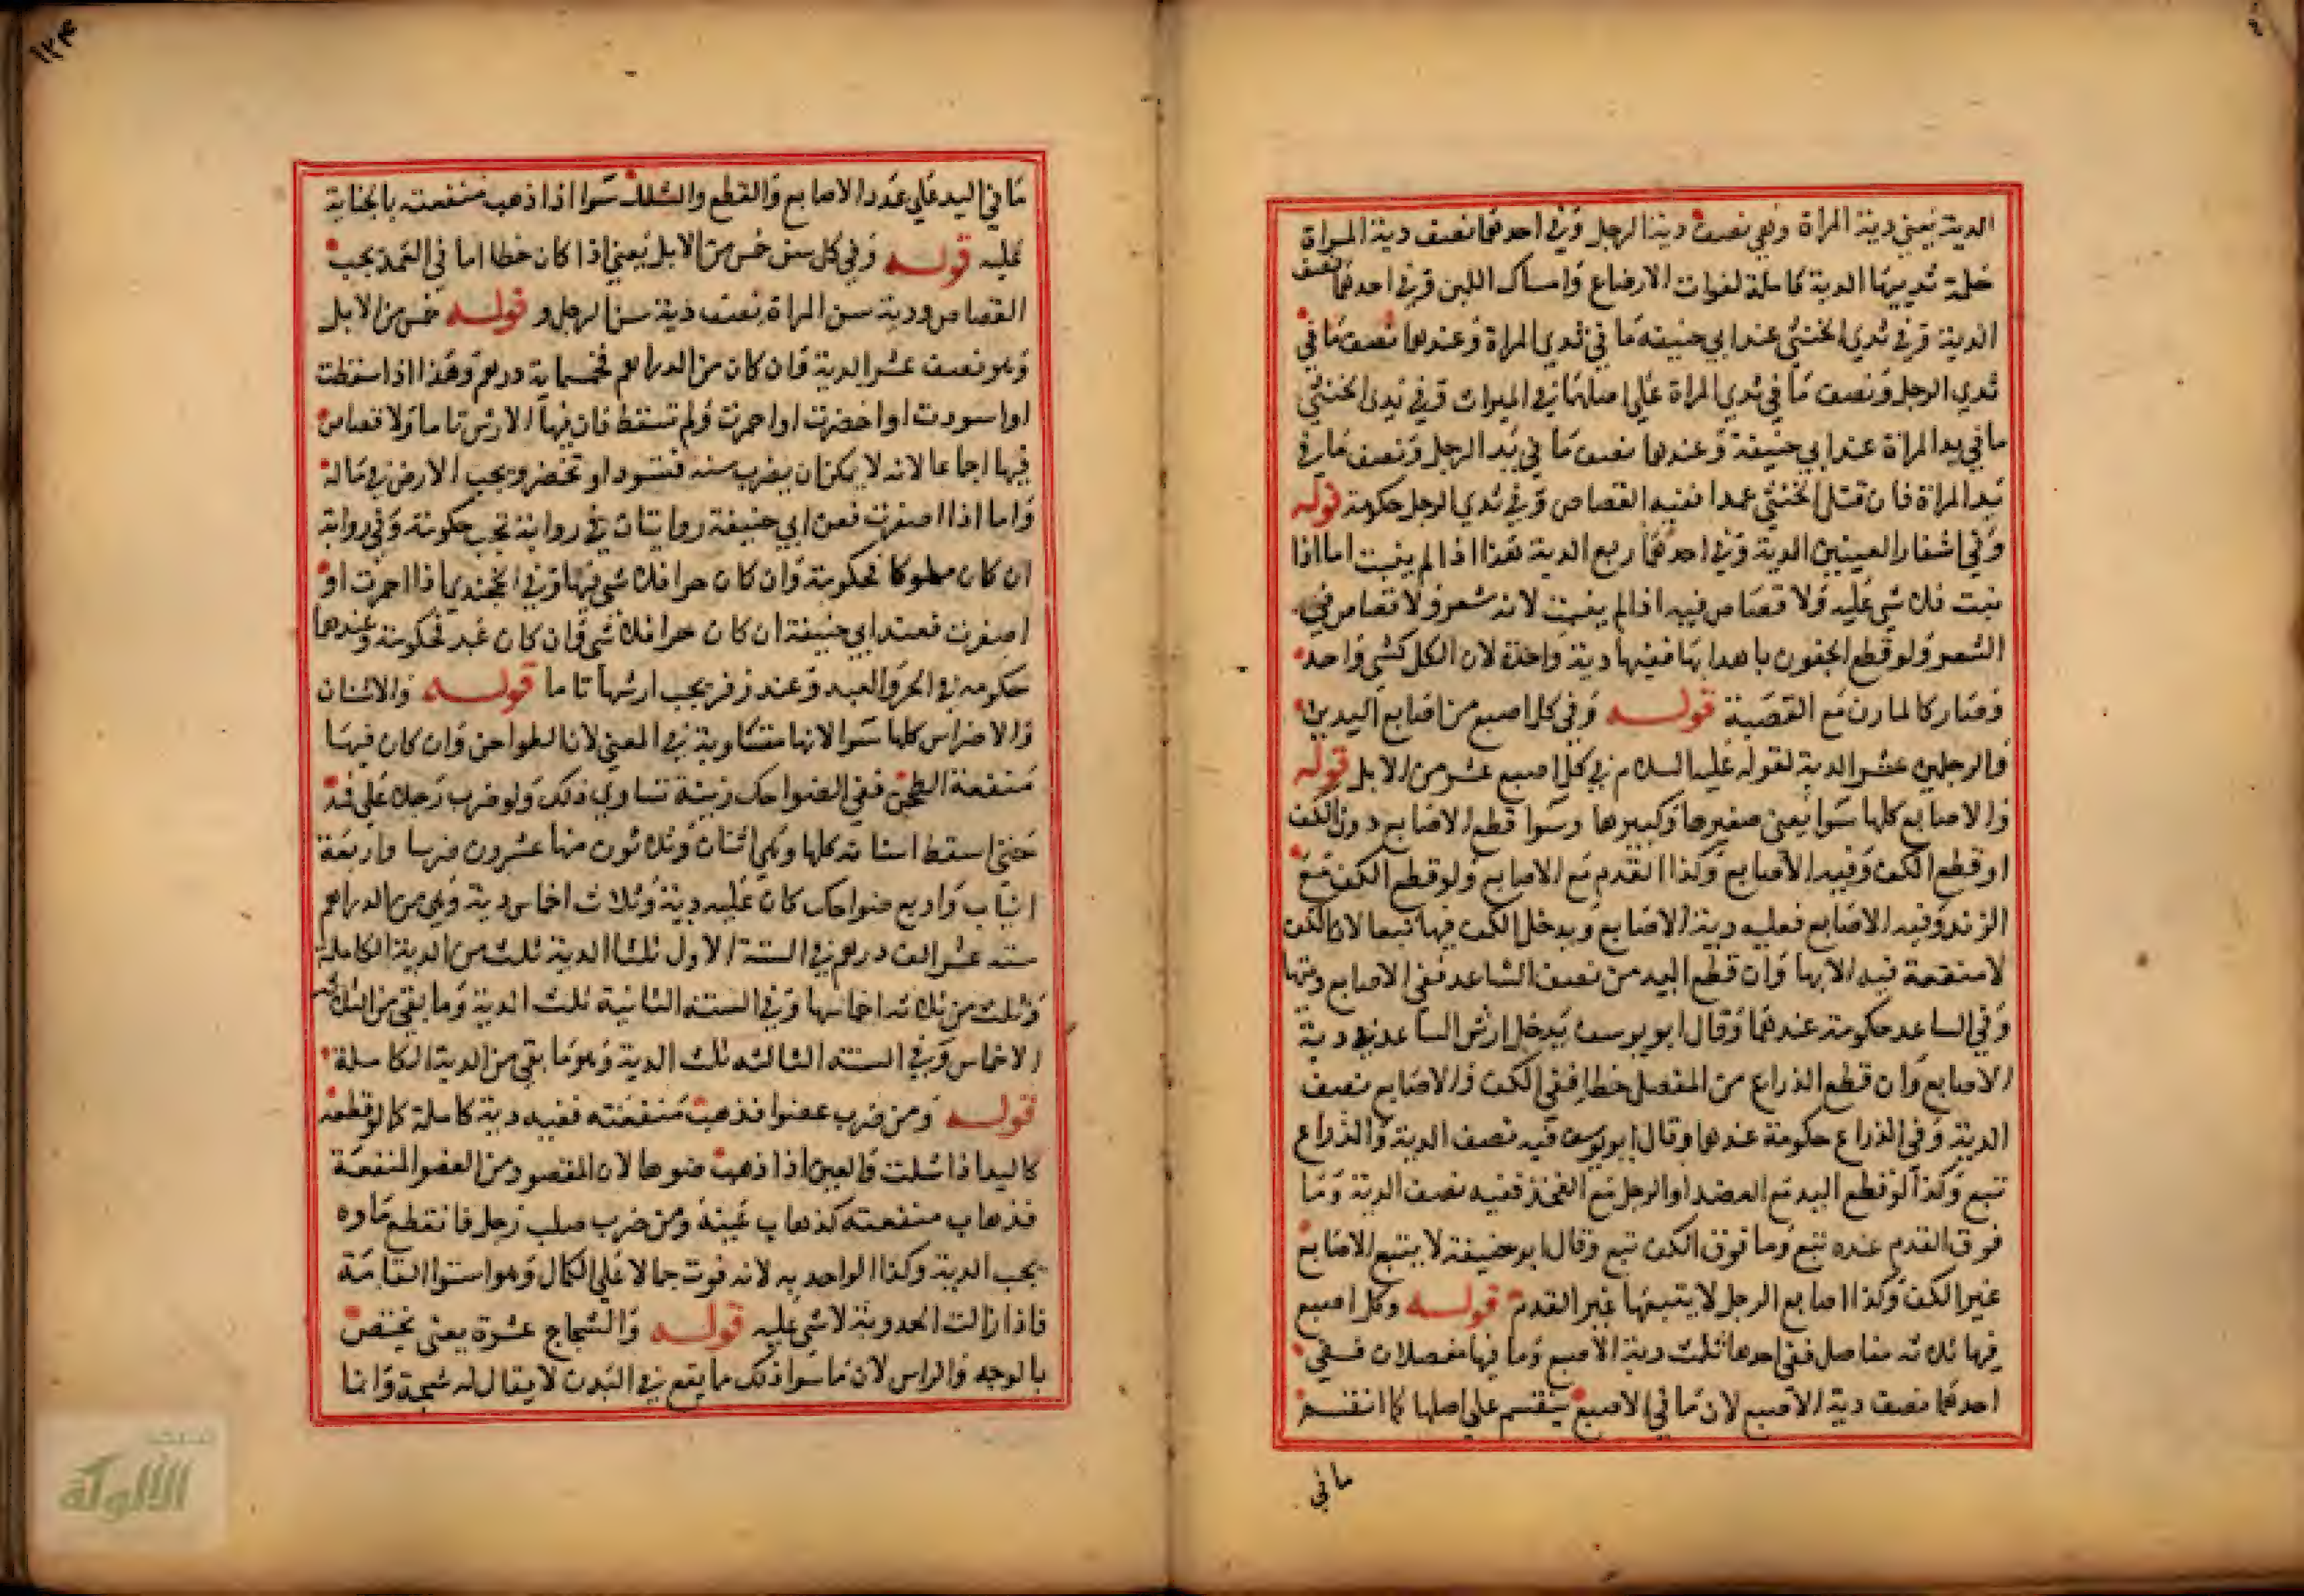 الدية يعني دية المراة وهي نصف دية الرجل وفي احدهما نصف دية المراة
حلمة ثدييها الدية كاملة لفوات الارضاع وامساك اللبن وفي احدهما نصف
الدية وفي ثدي الخنثي عند ابي حنيفه ما في ثدي المراة وعندهما نصف ما في
ثدي الرجل ونصف ما في ثدي المراة علي اصلهما في الميراث وفي يد الخنثي
ما في يد المراة عند ابي حنيفة وعندهما نصف ما في يد الرجل ونصف ما في
يد المراة فان قتل الخنثي عمدا ففيه القصاص وفي ثدي الرجل حكومة قوله
وفي اشفار العينين الدية وفي احدهما ربع الدية هذا اذا لم ينبت اما اذا
نبت فلا شي عليه ولا قصاص فيه اذا لم ينبت لانه شعر ولا قصاص في
الشعر ولو قطع الجفون باهدابها ففيها دية واحدة لان الكل كشي واحد
وصار كالمارن مع القصبة قوله وفي كل اصبع من اصابع اليدين
والرجلين عشر الدية لقوله عليه السلام في كل اصبع عشر من الابل قوله
والاصابع كلها سوا يعني صغيرها وكبيرها وسوا قطع الاصابع دون الكف
او قطع الكف وفيه الاصابع وكذا القدم مع الاصابع ولو قطع الكف مع
الزند وفيه الاصابع فعليه دية الاصابع ويدخل الكف فيها تبعا لان الكف
لا منفعة فيه الا بها وان قطع اليد من نصف الساعد ففي الاصابع ديتها
وفي الساعد حكومة عندهما وقال ابو يوسف يدخل ارش الساعد في دية
الاصابع وان قطع الذراع من المفصل خطا ففي الكف والاصابع نصف
الدية وفي الذراع حكومة عندهما وقال ابو يوسف فيه نصف الدية والذراع
تبع وكذا لو قطع اليد مع العضد او الرجل مع الفخذ ففيه نصف الدية وما
فوق القدم عنده تبع وما فوق الكف تبع وقال ابو حنيفة لا يتبع الاصابع
غير الكف وكذا اصابع الرجل لا يتبعها غير القدم قوله وكل اصبع
فيها ثلاثه مفاصل ففي احدها ثلث دية الاصبع وما فيها مفصلان ففي
احدهما نصف دية الاصبع لان ما في الاصبع ينقسم علي اصلها كما انقسم
ما في
١٢٤
ما في اليد علي عدد الاصابع والقطع والشلل سوا اذا ذهب منفعته بالجناية
عليه قوله وفي كل سن خمس من الابل يعني اذا كان خطا اما في العمد يجب
القصاص ودية سن المراة نصف دية سن الرجل و قوله خمس من الابل
وهو نصف عشر الدية وان كان من الدراهم فخمسماية درهم وهذا اذا سقطت
او اسودت او اخضرت او احمرت ولم تسقط فان فيها الارش تاما ولا قصاص
فيها اجماعا لانه لا يمكن ان يضرب سنه فتسود او تخضر ويجب الارش في ماله
واما اذا اصفرت فعن ابي حنيفة روايتان في رواية تجب حكومة وفي رواية
ان كان مملوكا فحكومة وان كان حرا فلا شي فيها وفي الخجندي اذا احمرت او
اصفرت فعند ابي حنيفة ان كان حرا فلا شي وان كان عبد فحكومة وعندهما
حكومه في الحر والعبد وعند زفر يجب ارشها تاما قوله والاسنان
والاضراس كلها سوا لانها متساوية في المعني لان الطواحن وان كان فيها
منفعة الطحن ففي الضواحك زينة تساوي ذلك ولو ضرب رجلا علي فمه
حتي اسقط اسنانه كلها وهي اثنان وثلاثون منها عشرون ضرسا واربعة
انياب واربع ضواحك كان عليه دية وثلاث اخماس دية وهي من الدراهم
سته عشر الف درهم في السنة الاول ثلثا الدية ثلث من الدية الكاملة
وثلث من ثلاثه اخماسها وفي السنه الثانية ثلث الدية وما بقي من الثلاثه
الاخماس وفي السنه الثالثه ثلث الدية وهو ما بقي من الدية الكاملة
قوله ومن ضرب عضوا فذهب منفعته ففيه دية كاملة كما لو قطعه
كاليد اذا شلت والعين اذا ذهب ضوها لان المقصود من العضو المنفعة
فذهاب منفعته كذهاب عينه ومن ضرب صلب رجل فانقطع ماوه
يجب الدية وكذا لو احدبه لانه فوت جمالا علي الكمال وهو استوا القامة
فاذا زالت الحدوبة لا شي عليه قوله والشجاج عشرة يعني يختص
بالوجه والراس لان ما سوا ذلك مما يقع في البدن لا يقال له شجة وانما
الألوكة